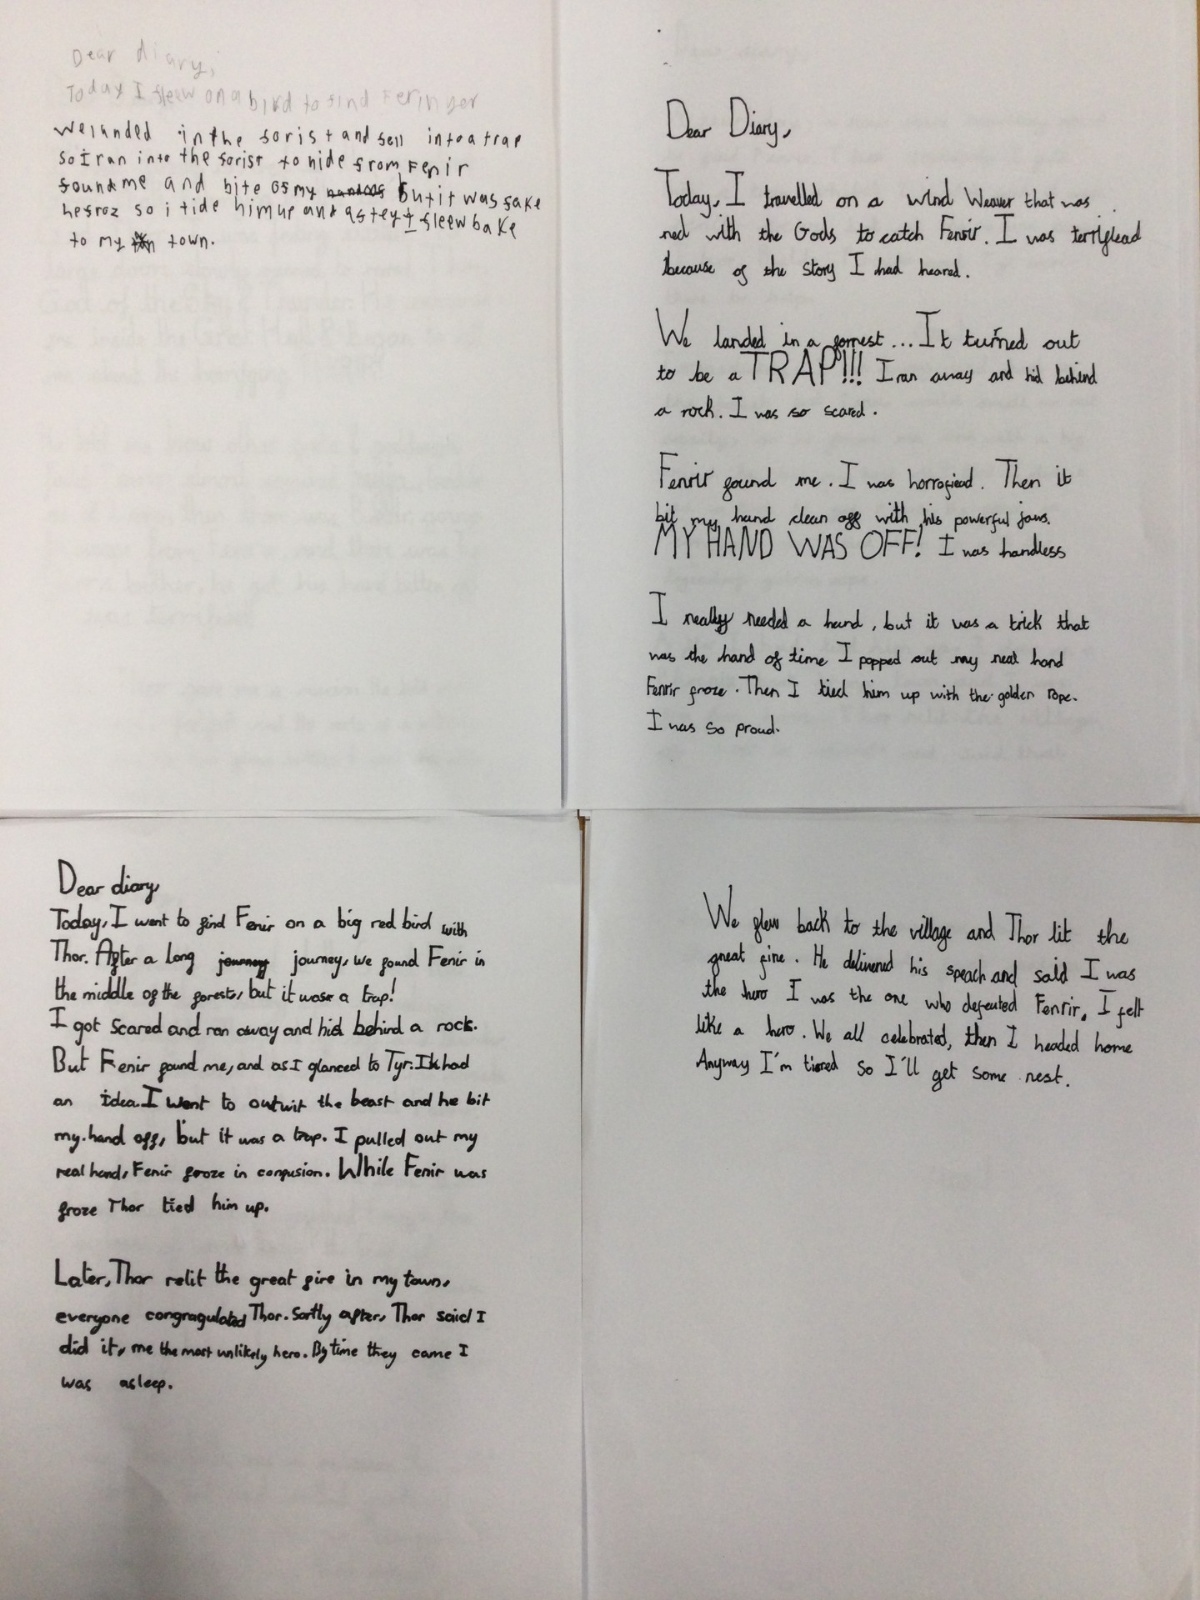 Dear diary,
Today I fleew on a bird to find Ferin
We landed in the forist and fell into a trap
so I ran into the forist to hide from Fenir
found me and bite of my but it was fake
he froz so i tide him up and I fleew bake
to my town.
Dear Diary,
Today, I travelled on a wind Weaver that was
red with the Gods to catch Fenrir. I was terrifiead
because of the story I had heared.
We landed in a forrest ... It turned out
to be a TRAP!!! I ran away and hid behind
a rock. I was so scared.
Fenrir found me. I was horrofiead. Then it
bit my hand clean off with his powerful jaws.
MY HAND WAS OFF! I was handless
I really needed a hand, but it was a trick that
was the hand of time I popped out my real hand
Fenrir froze. Then I tied him up with the golden rope.
I was so proud.
Dear diary,
Today, I went to find Fenir on a big red bird with
Thor. After a long journey journey, we found Fenir in
the middle of the forests, but it wase a trap!
I got scared and ran away and hid behind a rock.
But Fenir found me, and as I glanced to Tyr. I had
an idea. I went to outwit the beast and he bit
my hand off, but it was a trap. I pulled out my
real hand, Fenir froze in confusion. While Fenir was
froze Thor tied him up.
Later, Thor relit the great fire in my town,
everyone congragulated Thor. Sortly after, Thor said I
did it, me the most unlikely hero. By time they came I
was asleep.
We flew back to the village and Thor lit the
great fire. He delivered his speach and said I was
the hero I was the one who defeated Fenrir, I felt
like a hero. We all celebrated, then I headed home
Anyway I'm tiered so I'll get some rest.